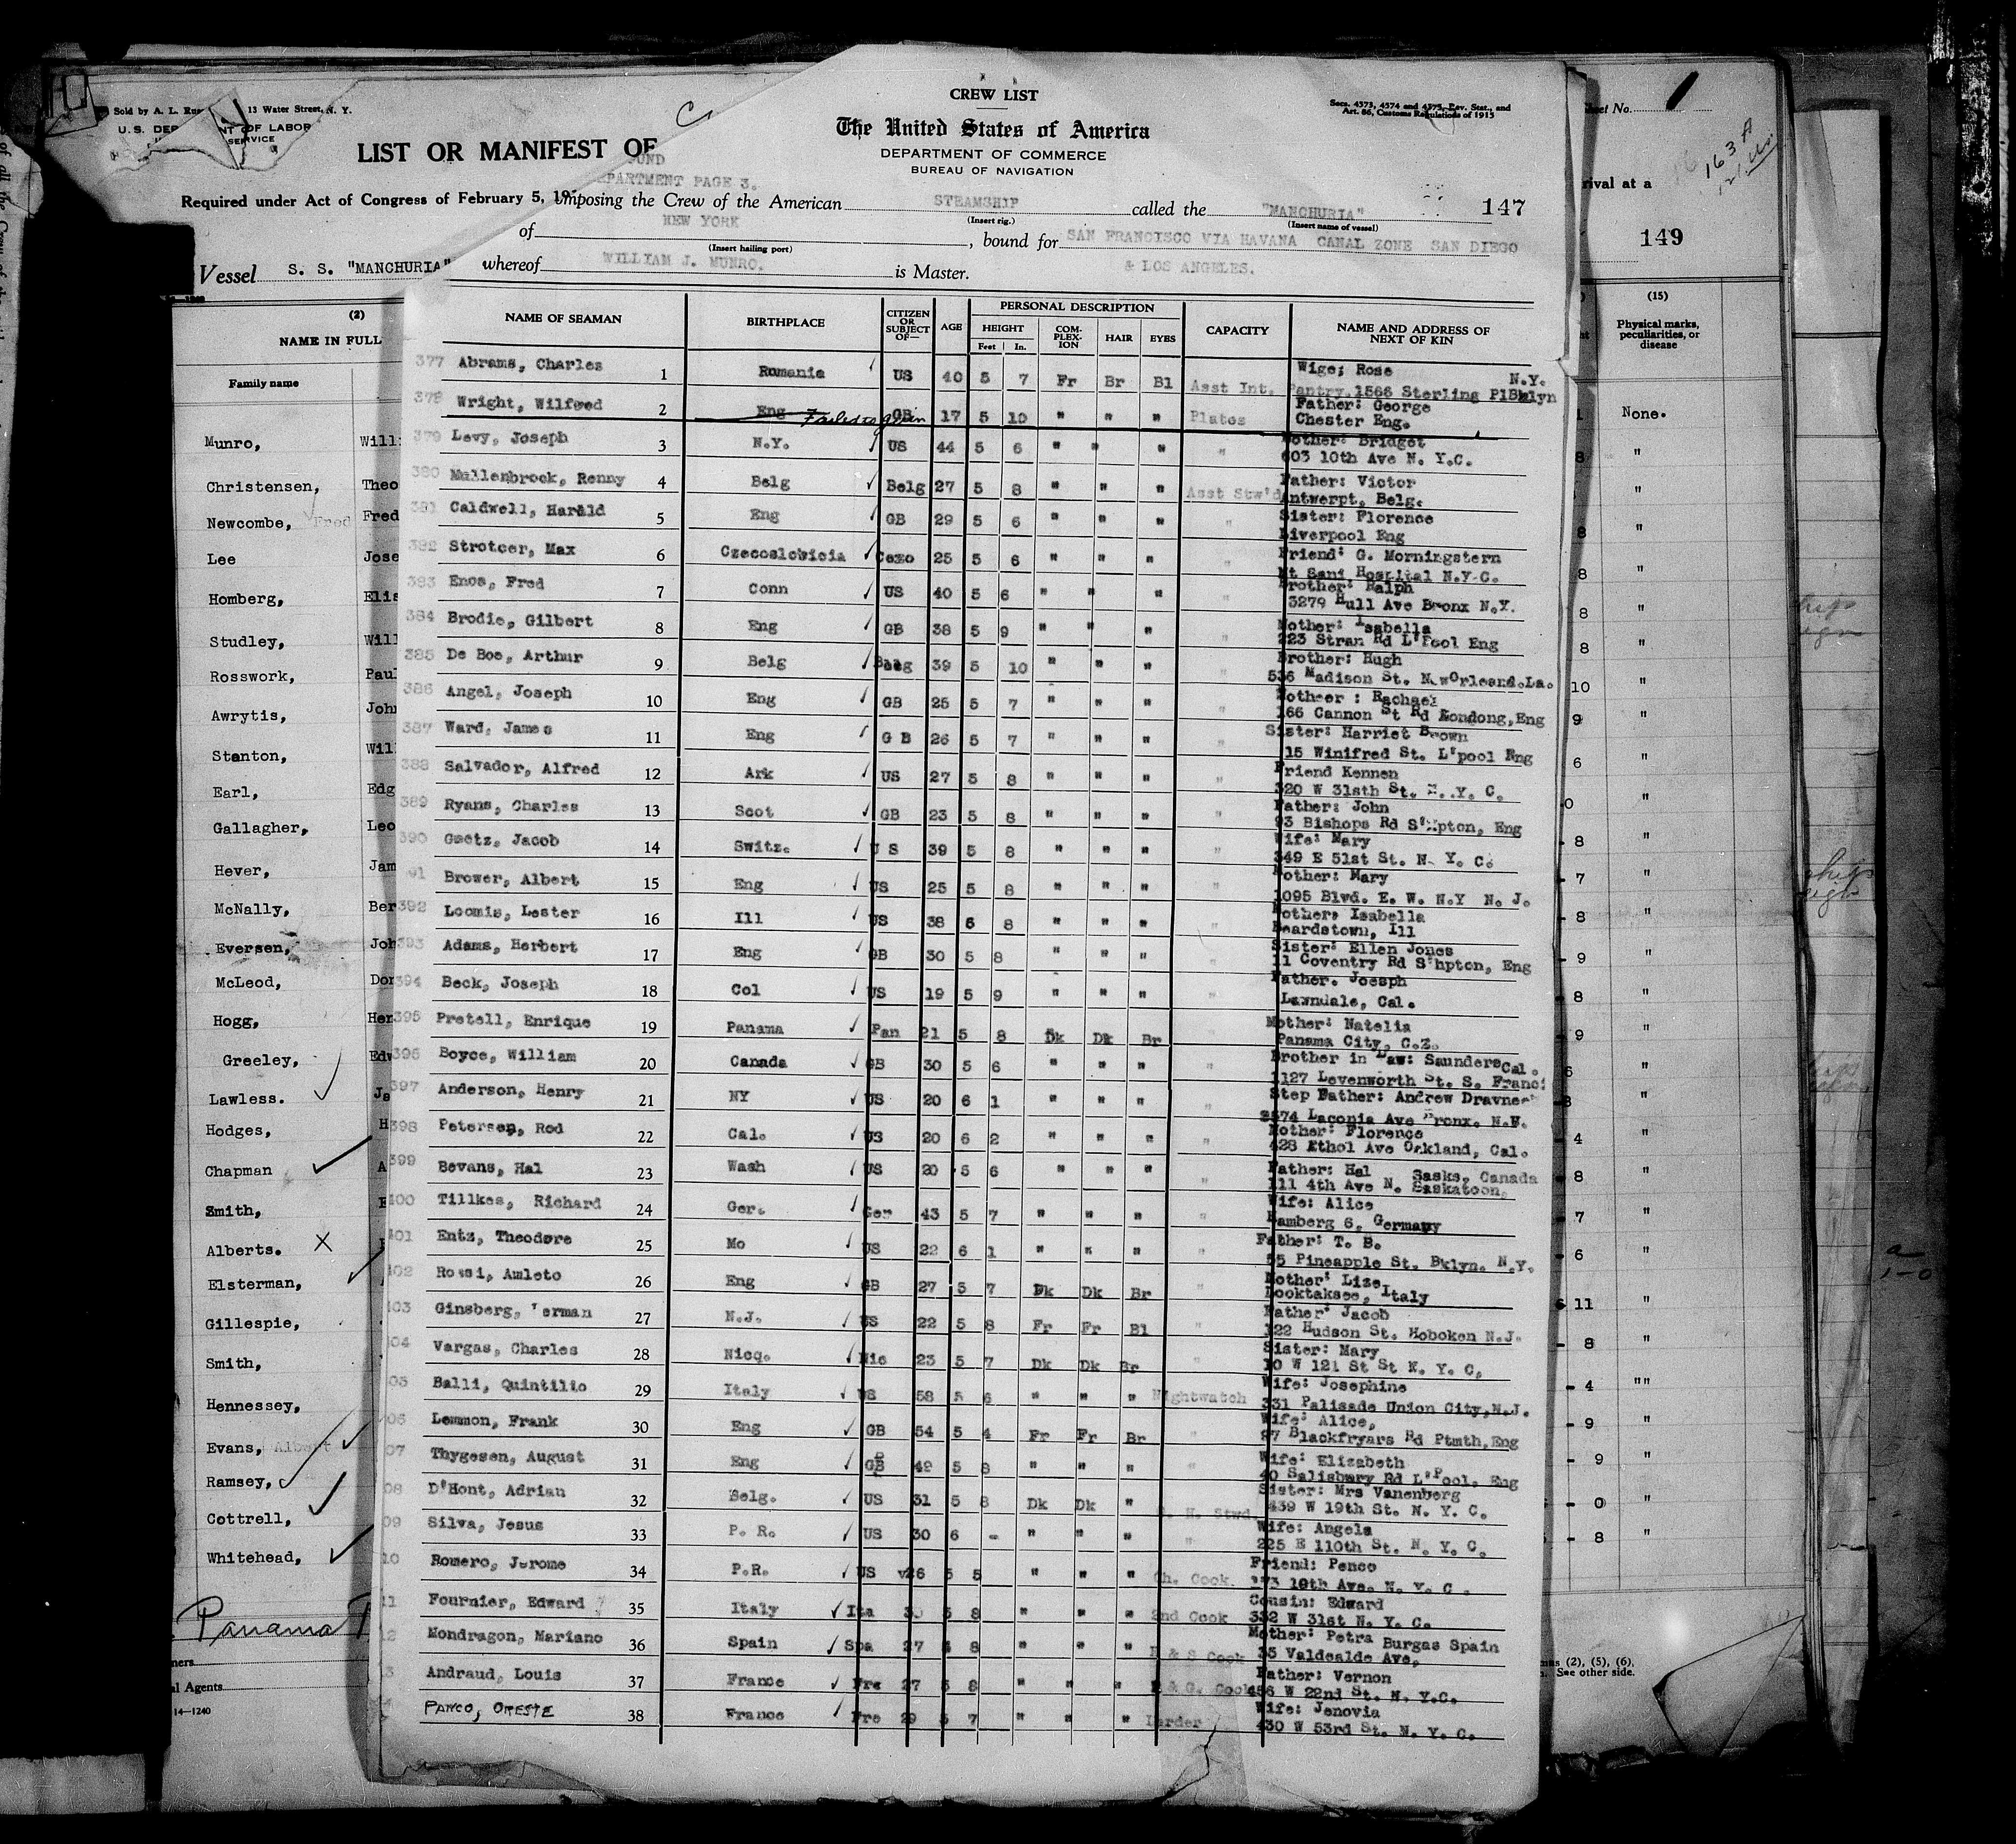 CREW LIST
Secs. 4573, 4574 and 4575, Rev. Stat., and
Art. 86, Customs Regulations of 1915
The United States of America
DEPARTMENT OF COMMERCE
BUREAU OF NAVIGATION
Sold by A. L. 13 Water Street, N. Y.
LIST OR MANIFEST OF
PAGE 3.
Required under Act of Congress of February 5,
mposing the Crew of the American STEAMSHIP called the "MANCHURIA" 147
(Insert rig.) (Insert name of vessel)
of NEW YORK, bound for SAN FRANCISCO VIA HAVANA CANAL ZONE SAN DIEGO
(Insert hailing port)
Vessel S. S. "MANCHURIA" whereof WILLIAM J. MUNRO. is Master. & LOS ANGELES.
NAME OF SEAMAN BIRTHPLACE CITIZEN OR SUBJECT OF— AGE PERSONAL DESCRIPTION CAPACITY NAME AND ADDRESS OF NEXT OF KIN
HEIGHT COM-PLEX-ION HAIR EYES
Feet In.
377 Abrams, Charles 1 Romania US 40 5 7 Fr Br Bl Asst Int. Wige; Rose N.Y.
Pantry. 1566 Sterling Pl Bklyn
378 Wright, Wilfred 2 Eng Failed to join GB 17 5 10 " " " Plates Father: George
Chester Eng.
379 Levy, Joseph 3 N.Y. US 44 5 6 " " " " Mother: Bridget
603 10th Ave N. Y.C.
380 Mullenbrock, Renny 4 Belg Belg 27 5 8 " " " Asst Stw'd Father: Victor
Antwerpt, Belg.
381 Caldwell, Harald 5 Eng GB 29 5 6 " " " " Sister: Florence
Liverpool Eng
382 Strotcer, Max 6 Czecoslovicia Cezo 25 5 6 " " " " Friend: G. Morningstern
Mt Sani Hospital N.Y.C.
383 Enos, Fred 7 Conn US 40 5 6 " " " " Brother: Ralph
3279 Hull Ave Bronx N.Y.
384 Brodie, Gilbert 8 Eng GB 38 5 9 " " " " Mother: Isabella
223 Stran Rd L'Pool Eng
385 De Boe, Arthur 9 Belg Belg 39 5 10 " " " " Brother: Hugh
536 Madison St. NewOrleand.La.
386 Angel, Joseph 10 Eng GB 25 5 7 " " " " Motheer : Rachael
166 Cannon St Rd Londong,Eng
387 Ward, James 11 Eng G B 26 5 7 " " " " Sister: Harriet Brown
15 Winifred St. L'pool Eng
388 Salvador, Alfred 12 Ark US 27 5 8 " " " " Friend Kennen
320 W 31sth St. N. Y. C.
389 Ryans, Charles 13 Scot GB 23 5 8 " " " " Father: John
93 Bishops Rd S'Hpton, Eng
390 Goetz, Jacob 14 Switz. U S 39 5 8 " " " " Wife: Mary
349 E 51st St. N. Y. C.
91 Brower, Albert 15 Eng US 25 5 8 " " " " Mother: Mary
1095 Blvd. E. W. N.Y N. J.
392 Loomis, Lester 16 Ill US 38 6 8 " " " " Mother: Isabella
Beardstown, Ill
393 Adams, Herbert 17 Eng GB 30 5 8 " " " " Sister: Ellen Jones
11 Coventry Rd S'hpton, Eng
394 Beck, Joseph 18 Col US 19 5 9 " " " " Father. Joesph
Lawndale, Cal.
395 Pretell, Enrique 19 Panama Pan 21 5 8 Dk Dk Br Mother: Natelia
Panama City, C.Z.
396 Boyce, William 20 Canada GB 30 5 6 " " " " Brother in Law: Saunders Cal.
1127 Levenworth St. S. Franci
397 Anderson, Henry 21 NY US 20 6 1 " " " " Step Father: Andrew
Laconia Ave Bronx.
398 Petersen, Rod 22 Cal. US 20 6 2 " " " " Mother: Florence
428 Ethol Ave Oakland, Cal.
399 Bevans, Hal 23 Wash US 20 5 6 " " " " Father: Hal Sasks, Canada
111 4th Ave N. Saskatoon,
400 Tillkes, Richard 24 Ger. Ger 43 5 7 " " " " Wife: Alice
Hamberg 6, Germany
401 Entz, Theodore 25 Mo US 22 6 1 " " " " Father: T. B.
55 Pineapple St. Bklyn. N.Y.
402 Rossi, Amleto 26 Eng GB 27 5 7 Dk Dk Br Mother: Lize
Looktaksee, Italy
403 Ginsberg, erman 27 N.J. US 22 5 8 Fr Fr Bl " Father: Jacob
122 Hudson St. Hoboken N.J.
04 Vargas, Charles 28 Nicq. Nic 23 5 7 Dk Dk Br Sister: Mary
10 W 121 St St N. Y. C,
05 Balli, Quintilio 29 Italy US 58 5 6 " " " Nightwatch Wife: Josephine
331 Palisade Union City,N.J.
06 Lemmon, Frank 30 Eng GB 54 5 4 Fr Fr Br " Wife: Alice,
87 Blackfryars Rd Ptmth,Eng
07 Thygesen, August 31 Eng GB 49 5 8 " " " " Wife: Elizabeth
40 Salisbury Rd L'Pool, Eng
08 D'Hont, Adrian 32 Belg. US 31 5 8 Dk Dk " Stwd. Sister: Mrs Vanenberg
439 W 19th St. N. Y. C.
09 Silva, Jesus 33 P. R. US 30 6 - " " " " Wife: Angela
225 E 110th St. N. Y. C.
10 Romero, Jerome 34 P.R. US 26 5 5 " " " Ch. Cook. Friend: Pence
19th Ave. N. Y. C.
11 Fournier, Edward 35 Italy Ita 5 8 " " " 2nd Cook Cousin: Edward
332 W 31st N. Y. C.
12 Mondragon, Mariano 36 Spain Spa 27 8 " " " R & S Cook Mother: Petra Burgas Spain
35 Valdealde Ave,
3 Andraud, Louis 37 France Fre 27 5 8 " " " & G. Cook Father: Vernon
456 W 22nd St. N. Y.C.
PANCO, ORESTE 38 France Fre 29 5 7 " " " Larder Wife: Jenovia
430 W 53rd St. N. Y. C.
(2)
NAME IN FULL
Family name
Munro, Will
Christensen, Theo
Newcombe, Fred Fred
Lee Jose
Homberg, Elis
Studley, Will
Rosswork, Paul
Awrytis, John
Stanton, Will
Earl, Edg
Gallagher, Leo
Hever, Jam
McNally, Ber
Eversen, Joh
McLeod, Don
Hogg, Her
Greeley, Edw
Lawless. Ja
Hodges, H
Chapman A
Smith,
Alberts.
Elsterman,
Gillespie,
Smith,
Hennessey,
Evans, Albert
Ramsey,
Cottrell,
Whitehead,
Panama
l Agents
14—1240
Sheet No. 1
163 A
rival at a
149
(15)
Physical marks, peculiarities, or disease
None.
(2), (5), (6),
See other side.